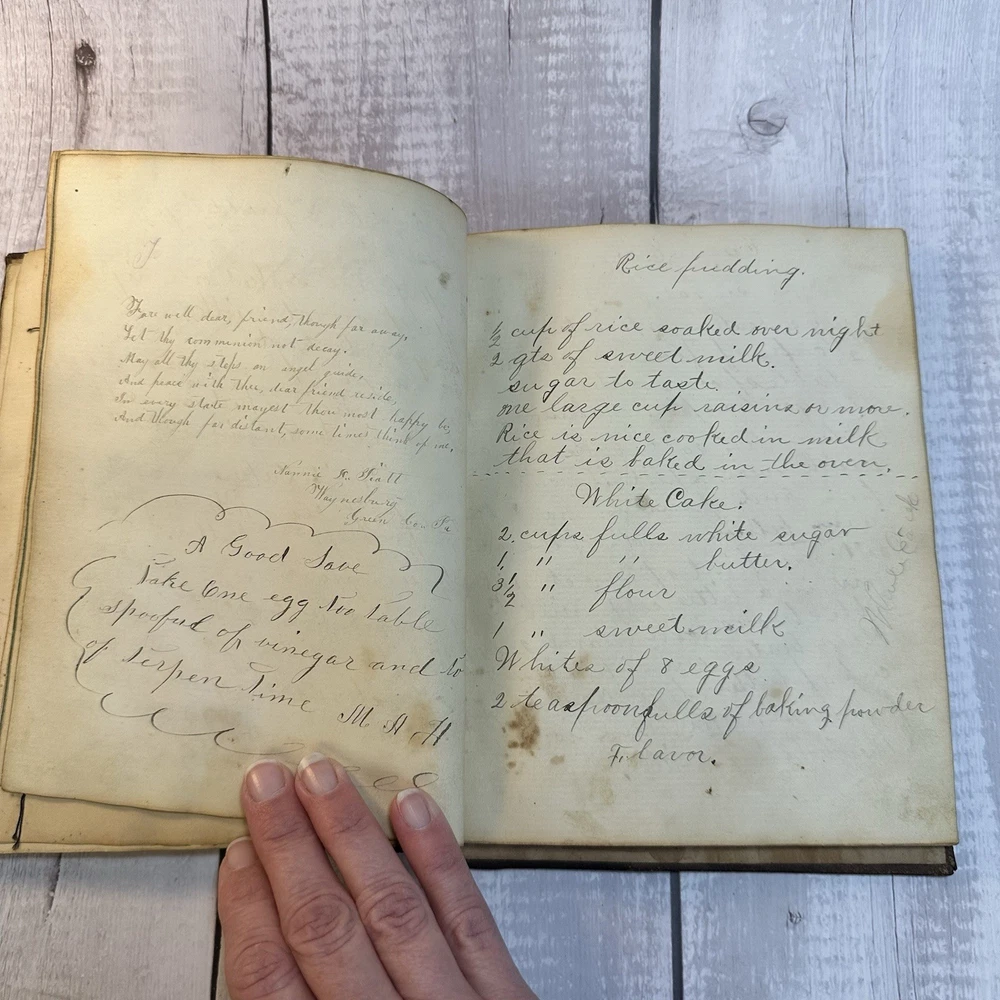 Fare well dear, friend, though far away,
Let thy communion not decay.
May all thy steps an angel guide,
And peace with thee, dear friend reside,
In every state mayest thou most happy be,
And though far distant, some times think of me,
Nannie
Waynesburg
Green Co. Pa
A Good Salve
Take One egg two table
spoofud of vinegar and two
of Terpen Time M A H
Rice pudding.
1/2 cup of rice soaked over night
2 qts of sweet milk.
sugar to taste.
one large cup raisins or more.
Rice is nice cooked in milk
that is baked in the oven.
White Cake.
2 cups fulls white sugar
1 " " butter.
3 1/2 " flour
1 " sweet milk
Whites of 8 eggs
2 teaspoonfulls of baking powder
Flavor.